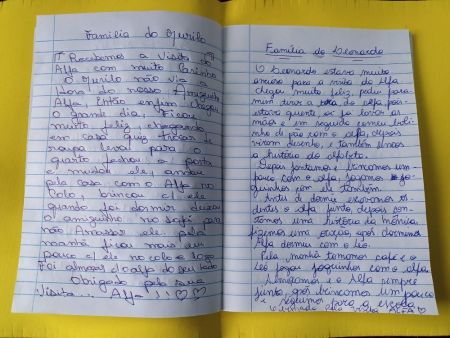 Família do Murilo
Recebemos a visita do
Alfa com muito carinho
O Murilo não via a
hora do nosso Amiguinho
Alfa, Então enfim chegou
o grande dia, ficou
muito feliz, chegando
em casa quiz trocar
roupa levar para o
quarto fechou a porta
e mudou ele, andou
pela casa com o Alfa no
colo, brincou c/ ele
quando foi dormir deixou
o amiguinho no sofá para
não Amassar ele. pela
manhã ficou mais um
pouco c/ ele no colo e logo
Foi almoçar c/ o alfa do seu lado
Obrigado pela sua
Visita... Alfa!!
Família do Leonardo
O Leonardo estava muito
ansioso para a visita do Alfa
chegou muito feliz, pediu para
mim tirar a do alfa pois
estava quente, foi lavar as
mãos e em seguida comeu bolinho
de pão com o alfa, depois
viram desenho, e também lemos
a história do alfabeto.
Depois jantamos e brincamos um
pouco com o alfa, jogamos jo-
guinhos com ele também.
Antes de dormir escovamos os
dentes o alfa junto, depois con-
tamos uma história da Mônica,
fizemos uma oração, após dormimos
Alfa dormiu com o Léo.
Pela manhã tomamos café e o
Léo jogou joguinhos com o alfa.
Almoçamos e o Alfa sempre
junto, após brincamos um pouco
e seguimos para a escola
pela visita ALFA